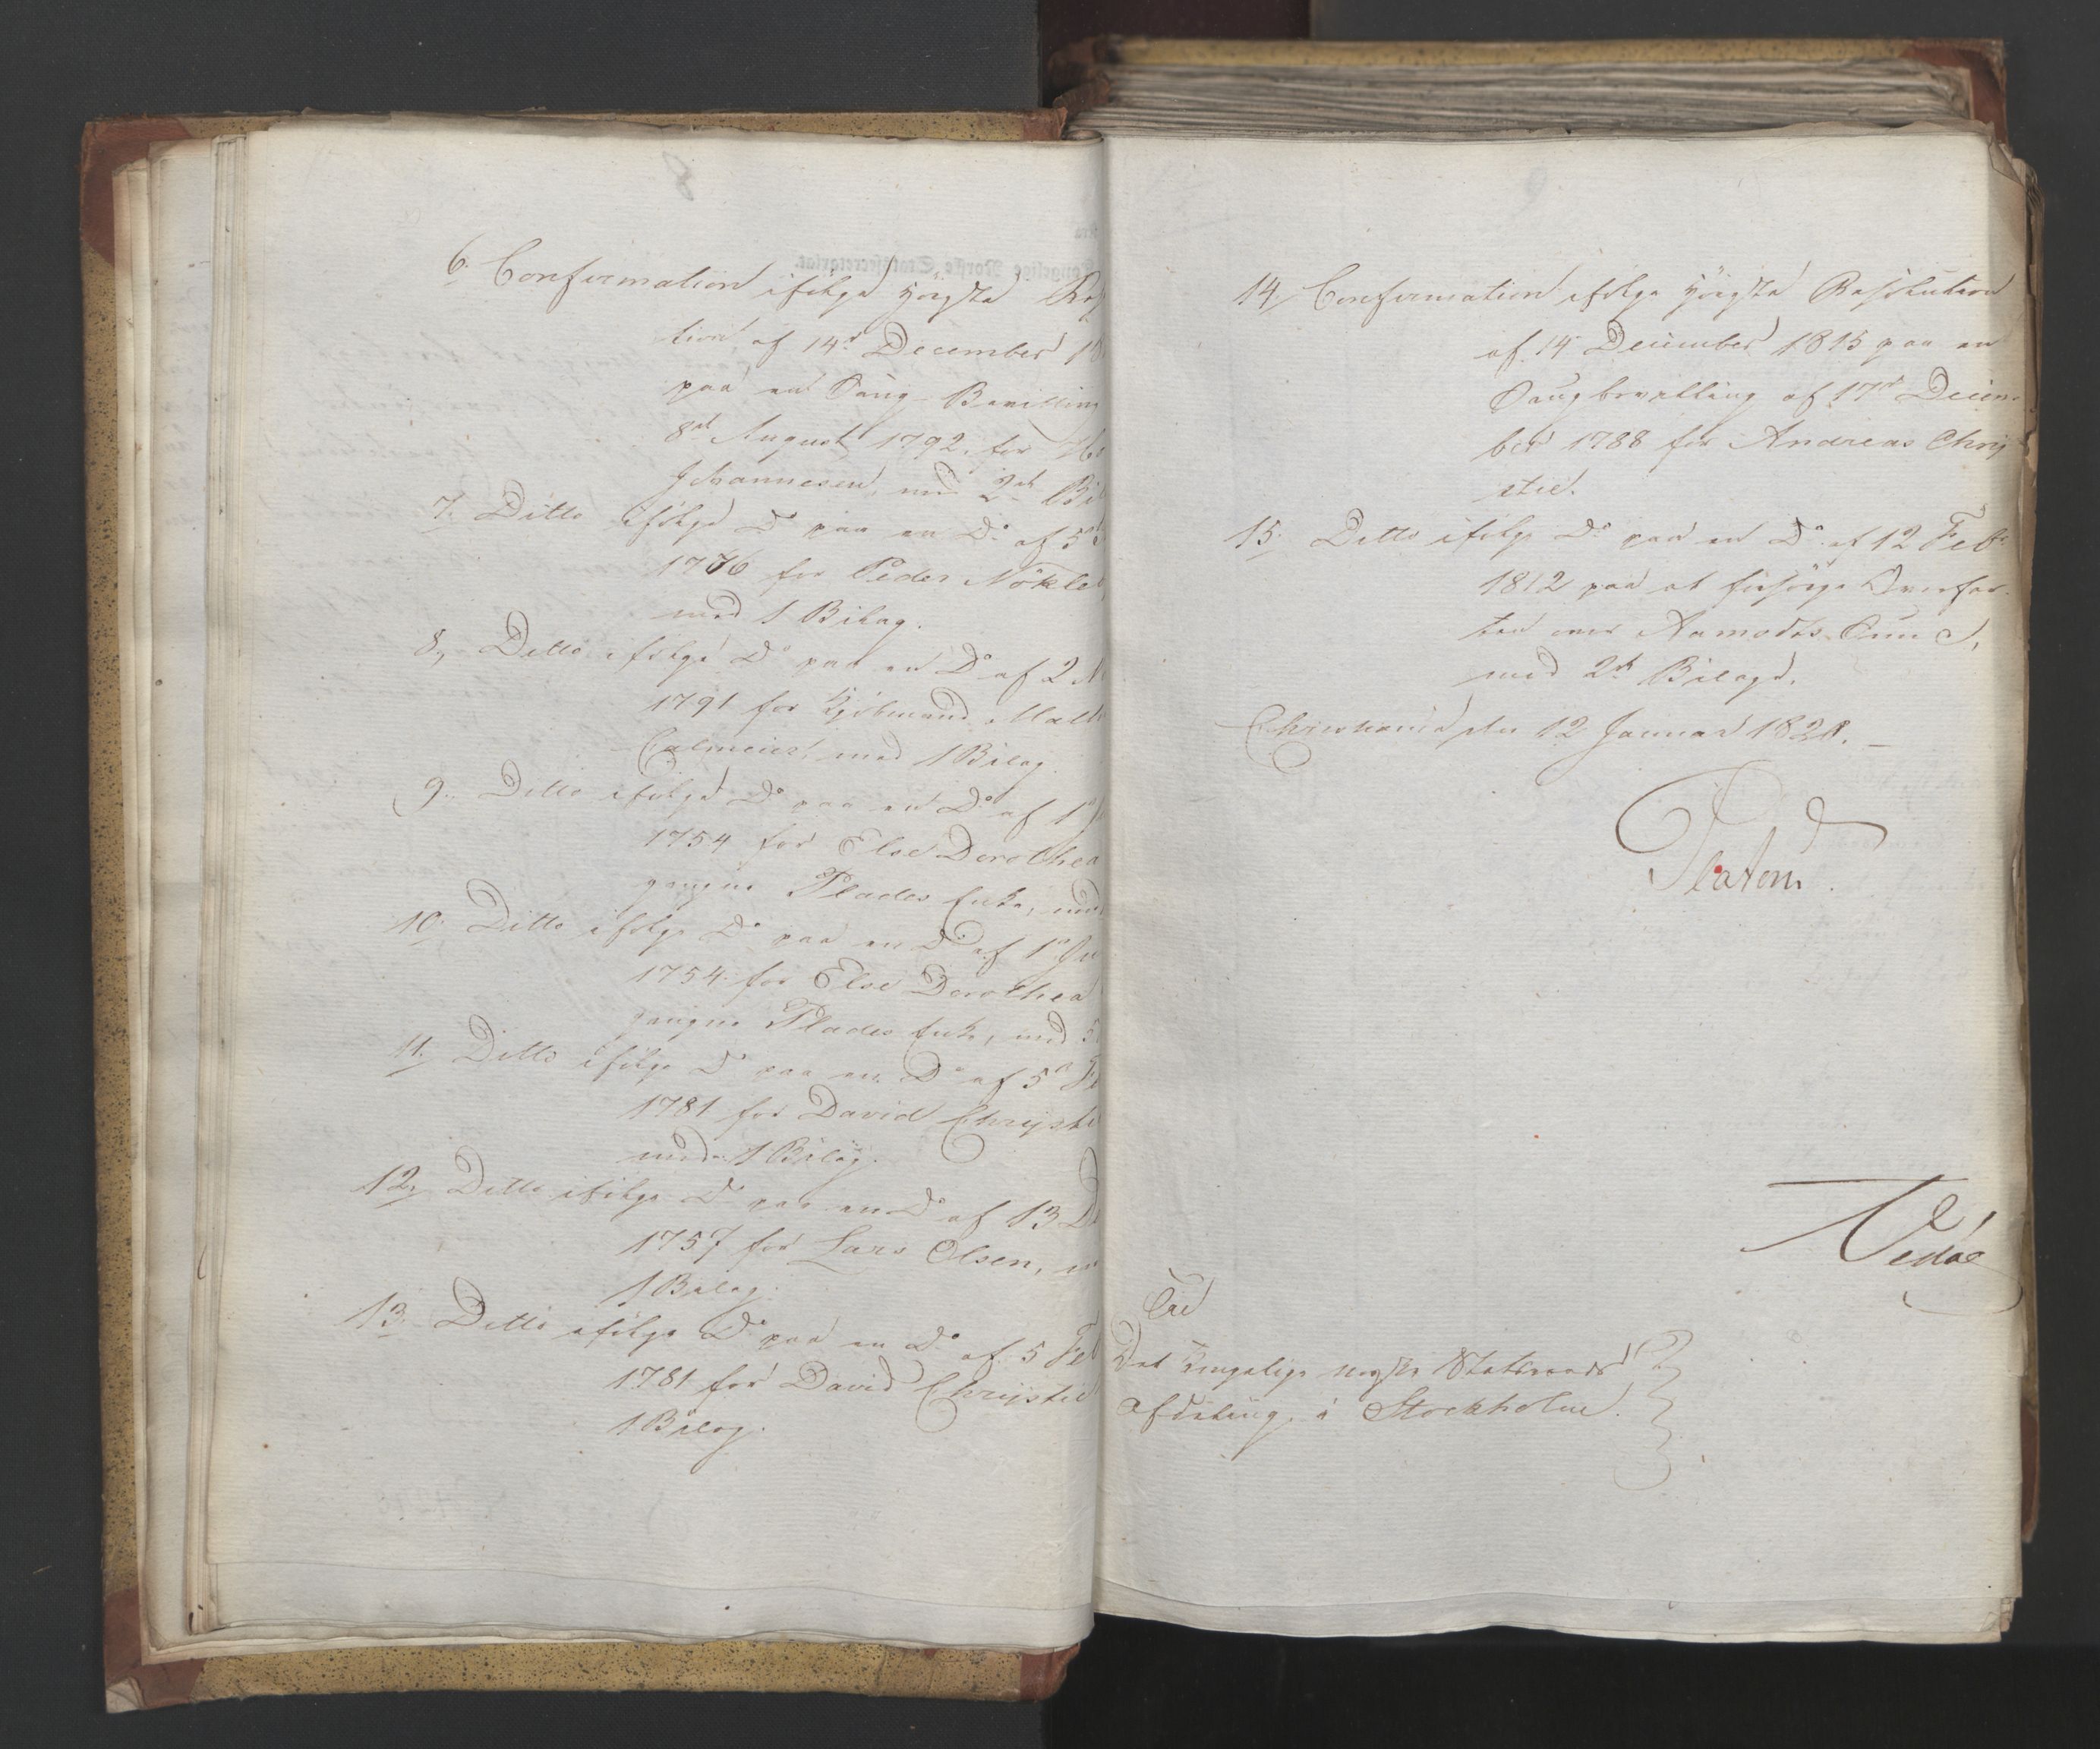 6. Confirmation ifölge Höigste Res
tion af 14de December 18
paa en Saug-Bevilling
8de August 1792, for
Johannesen, med 2de Bil
7. Ditto ifölge Do paa en Do af 5
1776 for Peder Nökleb
med 1 Bilag.
8. Ditto ifölge Do paa en Do af 2 M
1791 for Kjöbmand
Calmeier, med 1 Bilag.
9. Ditto ifölge Do paa en Do af 1
1754 for Else Dorothea
gangne Plades Enke, med
10. Ditto ifölge Do paa en Do af 1 Ju
1754 for Else Dorothea
gangne Plades Enke, med 5
11. Ditto ifölge Do paa en Do af 5 Fe
1781 for David Chrysti
med 1 Bilag.
12. Ditto ifölge Do paa en Do af 13 De
1757 for Lars Olsen, m
1 Bilag.
13. Ditto ifölge Do paa en Do af 5 Feb
1781 for David Chrystie
1 Bilag.
14. Confirmation ifölge Höigste Resolution
af 14 December 1815 paa en
Saugbevilling af 17de Decem-
ber 1788 for Andreas Chry
stie.
15. Ditto ifölge Do paa en Do af 12 Febr
1812 paa at forsörge Overfar-
ten over Aamodts Sund,
med 2de Bilage.
Christiania den 12 Januar 1820.
Platou.
Vedel
Til
Det Kongelige norske Statsraads
Afdeling i Stockholm.